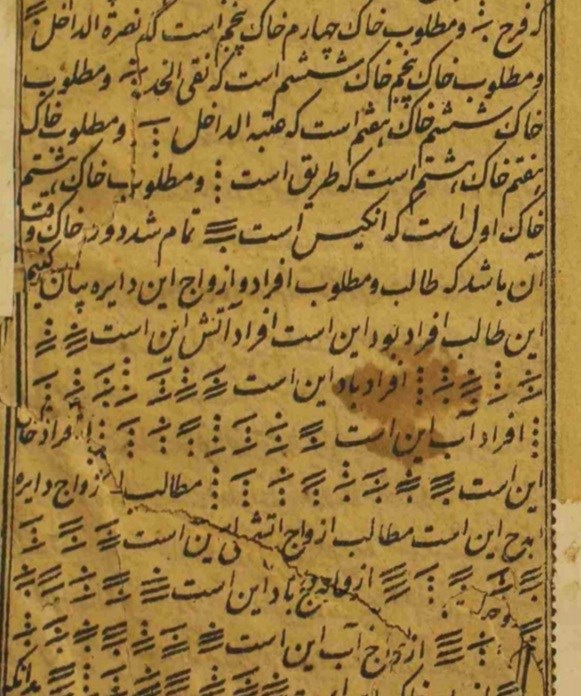 که فرح و مطلوب خاک چهارم خاک پنجم است که نصرة الداخل
و مطلوب خاک پنجم خاک ششم است که نقی الخد و مطلوب
خاک ششم خاک هفتم است که عتبه الداخل و مطلوب خاک
هفتم خاک هشتم است که طریق است و مطلوب خاک هشتم
خاک اول است که انکیس است تمام شد دور خاک وقت
آن باشد که طالب و مطلوب افراد و ازواج این دایره بیان کنیم
این طالب افراد بود این است افراد آتش این است
افراد باد این است
افراد آب این است افراد خاک
این است مطالب ازواج دایره
ابدح این است مطالب ازواج اتشی این است
ازواج باد این است
ازواج آب این است